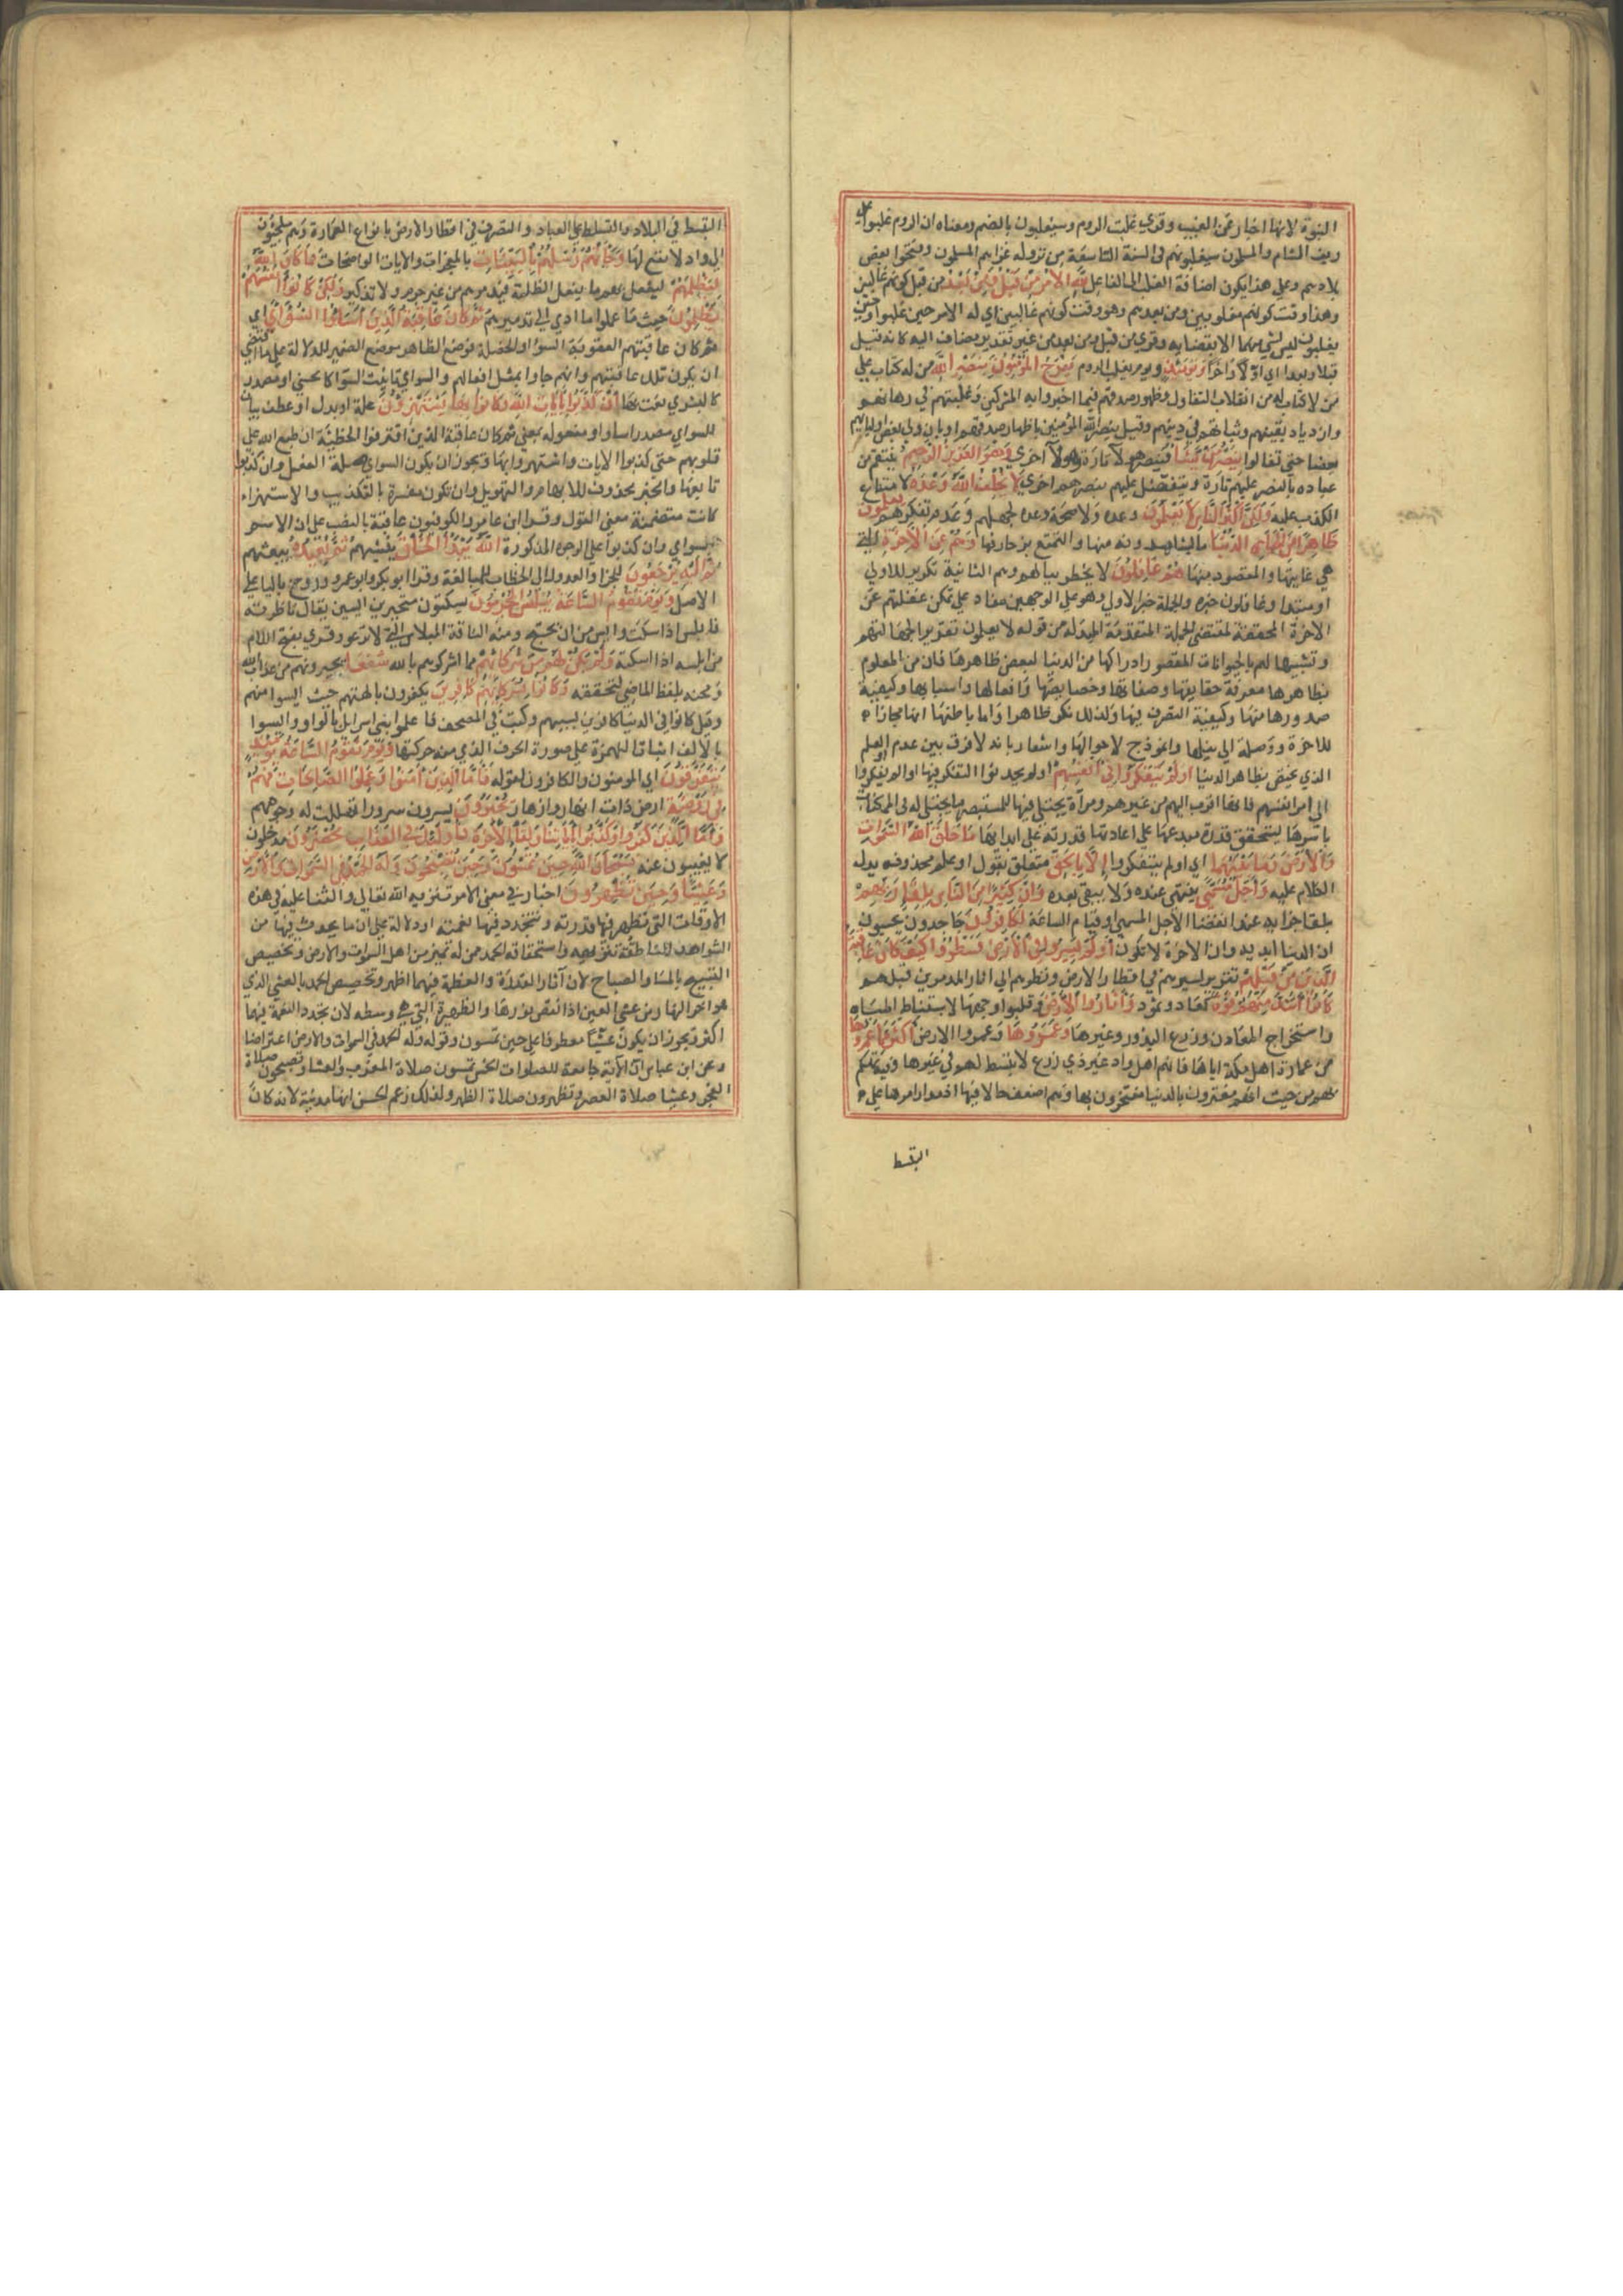 النبوة لانها اخبار عن الغيب وقري غلبت الروم وسيغلبون بالضم ومعناه ان الروم غلبوا علي
ريف الشام والمسلمون سيغلبونهم في السنة التاسعة من نزوله غزاهم المسلمون وفتحوا بعض
بلادهم وعلي هذا يكون اضافة الغلب الي الفاعل لله الامر من قبل ومن بعد من قبل كونهم غالبين
وهذا وقت كونهم مغلوبين ومن بعدهم وهو وقت كونهم غالبين اي له الامر حين غلبوا وحين
يغلبون ليس شي منهما الا بقضايه وقري من قبل ومن بعد من غير تقدير مضاف اليه كانه قيل
قبلا وبعدا اي اولا واخرا ويومئذ ويوم يغلب الروم يفرح المؤمنون بنصر الله من له كتاب علي
من لا كتاب له من انقلاب التفاول وظهور صدقهم فيما اخبروا به المشركين وغلبتهم في رهانهم
وازدياد يقينهم وثباتهم في دينهم وقيل بنصر الله المؤمنين باظهار صدقهم او بان ولي بعض اعدايهم
بعضا حتى تفانوا ينصر من يشا فينصر هولا تارة وهولا اخري وهو العزيز الرحيم ينتقم من
عباده بالنصر عليهم تارة ويتفضل عليهم بنصرهم اخري لا يخلف الله وعده لامتناع
الكذب عليه ولكن اكثر الناس لا يعلمون وعده ولا صحة وعده لجهلهم وعدم تفكرهم يعلمون
ظاهرا من الحياة الدنيا ما يشاهدونه منها والتمتع بزخارفها وهم عن الاخرة التي
هي غايتها والمقصود منها هم غافلون لا يخطر ببالهم وهم الثانية تكرير للاولي
او مبتدا وغافلون خبره والجملة خبر الاولي وهو علي الوجهين مناد علي تمكن غفلتهم عن
الاخرة المحققة لمقتضى الجملة المتقدمة المبدلة من قوله لا يعلمون تقريرا لجهالتهم
وتشبيها لهم بالحيوانات المقصور ادراكها من الدنيا لبعض ظاهرها فان من المعلوم
بظاهرها معرفة حقايقها وصفاتها وخصايصها وافعالها واسبابها وكيفية
صدورها منها وكيفية التصرف فيها ولذلك نكر ظاهرا واما باطنها انها مجاز
للاخرة ووصلة الي نيلها وانموذج لاحوالها واشعار بانه لا فرق بين عدم العلم
الذي يختص بظاهر الدنيا اولم يتفكروا في انفسهم اولم يحدثوا التفكر فيها او اولم يفكروا
الي امر انفسهم فانها اقرب اليهم من غيرهم ومرآة يجتلي فيها للمستبصر ما يجتلي له في الممكنات
باسرها ليتحقق قدرة مبدعها علي اعادتها قدرته علي ابدايها ما خلق الله السموات
والارض وما بينهما الا بالحق متعلق بقول او علم محذوف يدل
الكلام عليه واجل مسمي ينتهي عنده ولا يبقي بعده وان كثيرا من الناس بلقا ربهم
بلقا جزايه عند انقضا الاجل المسمي او قيام الساعة لكافرون جاحدون يحسبون
ان الدنيا ابدية وان الاخرة لا تكون اولم يسيروا في الارض فينظروا كيف كان عاقبة
الذين من قبلهم تقرير لسيرهم في اقطار الارض ونظرهم الي اثار المدمرين قبلهم
كانوا اشد منهم قوة كعاد وثمود واثاروا الارض وقلبوا وجهها لاستنباط المياه
واستخراج المعادن وزرع البذور وغيرها وعمروها وعمروا الارض اكثر مما عمروها
من عمارة اهل مكة اياها فانهم اهل واد غير ذي زرع لا تبسط لهم في غيرها وفيه تهكم
بهم من حيث انهم مغترون بالدنيا مفتخرون بها وهم اضعف حالا فيها اذ مدار امرها علي
التبسط
التبسط في البلاد والتسلط علي العباد والتصرف في اقطار الارض بانواع العمارة وهم ملجئون
الي واد لا نفع لها وجاتهم رسلهم بالبينات بالمعجزات والايات الواضحات فما كان الله
ليظلمهم ليفعل بهم ما يفعل الظلمة فيدمرهم من غير جرم ولا تذكير ولكن كانوا انفسهم
يظلمون حيث عملوا ما ادي الي تدميرهم ثم كان عاقبة الذين اساؤا السوأي اي
ثم كان عاقبتهم العقوبة السوا او الخصلة فوضع الظاهر موضع الضمير للدلالة علي ما اقتضي
ان يكون تلك عاقبتهم وانهم جاوا بمثل افعالهم والسواي تانيث الاسوا كالحسني او مصدر
كالبشري نعت بها ان كذبوا بايات الله وكانوا بها يستهزؤن علة او بدل او عطف بيان
للسواي مصدر اساوا او مفعوله بمعني ثم كان عاقبة الذين اقترفوا الخطيئة ان طبع الله علي
قلوبهم حتى كذبوا الايات واستهزوا بها ويجوز ان يكون السواي صلة الفعل وان كذبوا
تابعها والخبر محذوف للابهام والتهويل وان تكون مفسرة بالتكذيب والاستهزاء
كانت متضمنة معني القول وقرا ابن عامر والكوفيون عاقبة بالنصب علي ان الاسم
السواي وان كذبوا علي الوجوه المذكورة الله يبدؤا الخلق ينشيهم ثم يعيده يبعثهم
ثم اليه يرجعون للجزا والعدول الي الخطاب للمبالغة وقرا ابو بكر وابو عمرو وروح باليا علي
الاصل ويوم تقوم الساعة يبلس المجرمون يسكتون متحيرين ايسين يقال ناظرته
فابلس اذا سكت وايس من ان يحتج ومنه الناقة المبلاس التي لا ترغو وقري بفتح اللام
من ابلسه اذا اسكته ولم يكن لهم من شركائهم مما اشركوهم بالله شفعا يجيرونهم من عذاب الله
ومجيئه بلفظ الماضي لتحققه وكانوا بشركائهم كافرين يكفرون بالهتهم حيث ايسوا منهم
وقيل كانوا في الدنيا كافرين بسببهم وكتب في المصحف علموا بني اسرايل بالواو والسوا
بالالف اثباتا للهمزة علي صورة الحرف الذي منه حركتها ويوم تقوم الساعة يومئذ
يتفرقون اي المومنون والكافرون لقوله فاما الذين امنوا وعملوا الصالحات فهم
في روضة ارض ذات ازهار وانهار يحبرون يسرون سرورا تهللت له وجوههم
واما الذين كفروا وكذبوا باياتنا ولقاء الاخرة فاولئك في العذاب محضرون مدخلون
لا يغيبون عنه فسبحان الله حين تمسون وحين تصبحون وله الحمد في السموات والارض
وعشيا وحين تظهرون اخبار في معني الامر بتنزيه الله تعالي والثنا عليه في هذه
الاوقات التي تظهر فيها قدرته وتتجدد فيها نعمته او دلالة علي ان ما يحدث فيها من
الشواهد الناطقة بتنزيهه واستحقاقه الحمد ممن له تمييز من اهل السموات والارض وتخصيص
التسبيح بالمسا والصباح لان آثار القدرة والعظمة فيهما اظهر وتخصيص الحمد بالعشي الذي
هو اخر النهار من عشي العين اذا نقص نورها والظهيرة التي هي وسطه لان تجدد النعمة فيها
اكثر ويجوز ان يكون عشيا معطوفا علي حين تمسون وقوله وله الحمد في السموات والارض اعتراضا
وعن ابن عباس ان الآية جامعة للصلوات الخمس تمسون صلاة المغرب والعشا وتصبحون صلاة
الفجر وعشيا صلاة العصر وتظهرون صلاة الظهر ولذلك زعم الحسن انها مدنية لانه كان